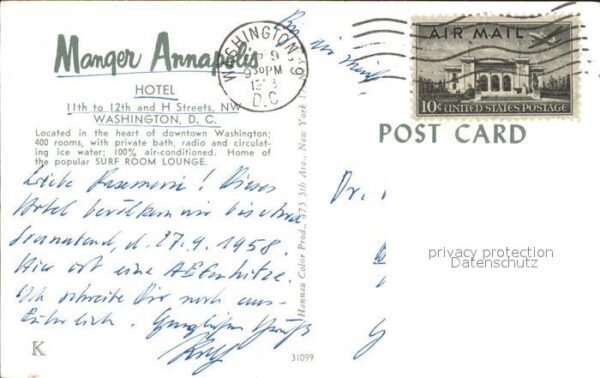 Manger Annapolis
HOTEL
11th to 12th and H Streets, NW
WASHINGTON, D. C.
Located in the heart of downtown Washington;
400 rooms, with private bath, radio and circulat-
ing ice water; 100% air-conditioned. Home of
the popular SURF ROOM LOUNGE.
Liebe ! Dieses
Hotel bevölkern wir bis
Sonnabend, d. 27.9.1958.
Hier ist eine Affenhitze.
Ich schreibe Dir noch aus-
führlich. Gruß
Rolf
K
31099
Hannau Color Prod., 475 5th Ave., New York
By air mail
WASHINGTON
9 30 PM
D.C.
AIR MAIL
10¢ UNITED STATES POSTAGE
POST CARD
Dr.
privacy protection
Datenschutz